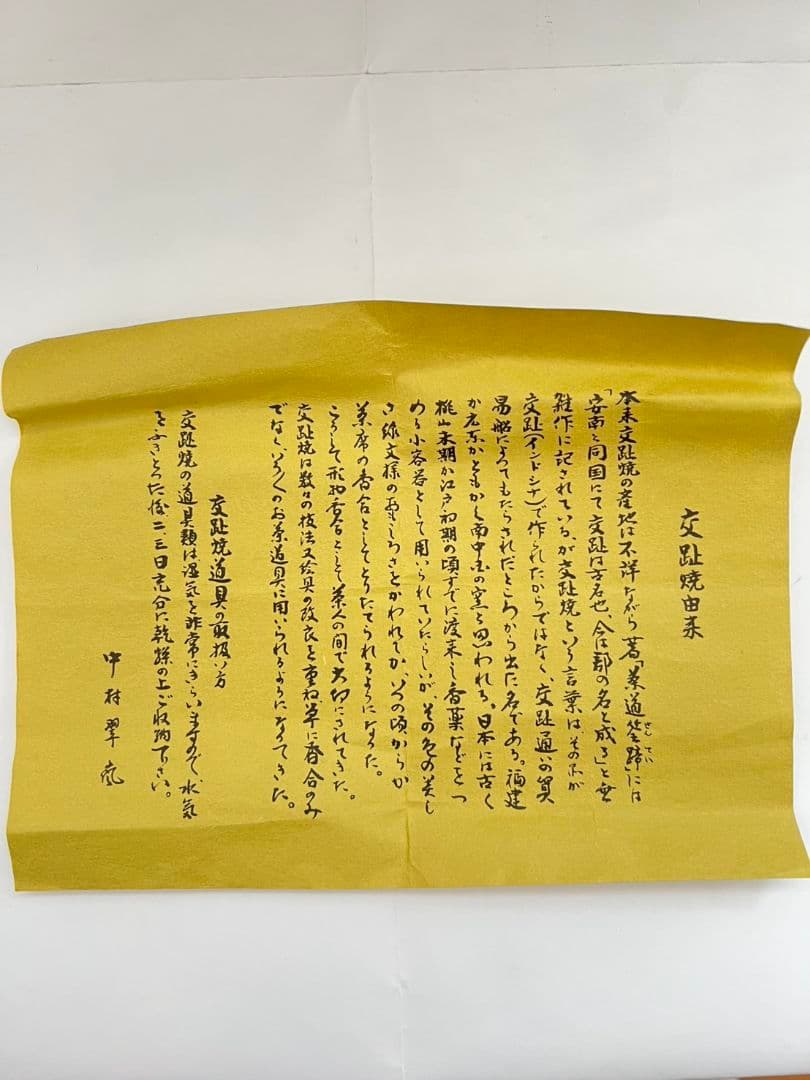 交趾焼由来
本来交趾焼の産地は不詳ながら著「茶道筌蹄」には
せんてい
「安南と同国にて交趾は古名也、今は郡の名と成る」と
雑作に記されている、が交趾焼という言葉はその品が
交趾(インドシナ)で作られたからではなく、交趾通いの貿
易船によってもたらされたところから出た名である。福建
か広東かともかく南中国の窯と思われる、日本には古く
桃山末期か江戸初期の頃すでに渡来し香薬などをつ
める小容器として用いられていたらしいが、その色の美し
さ線文様の面しろさとかわれてか、いつの頃からか
茶席の香合としてとりたてられるようになった。
こうして形物香合として茶人の間で大切にされてきた。
交趾焼は数々の技法又絵具の改良を重ね単に香合のみ
でなくいろ〱のお茶道具に用いられるようになってきた。
交趾焼道具の取扱い方
交趾焼の道具類は湿気を非常にきらいますので、水気
をふきとった後二三日充分に乾燥の上ご収納下さい。
中村翠嵐